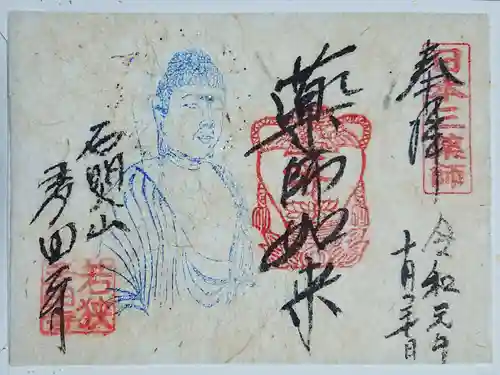 奉拝
日本三薬師
令和元年
十月二十日
薬師如来
石照山
多田寺
若狭
多田寺